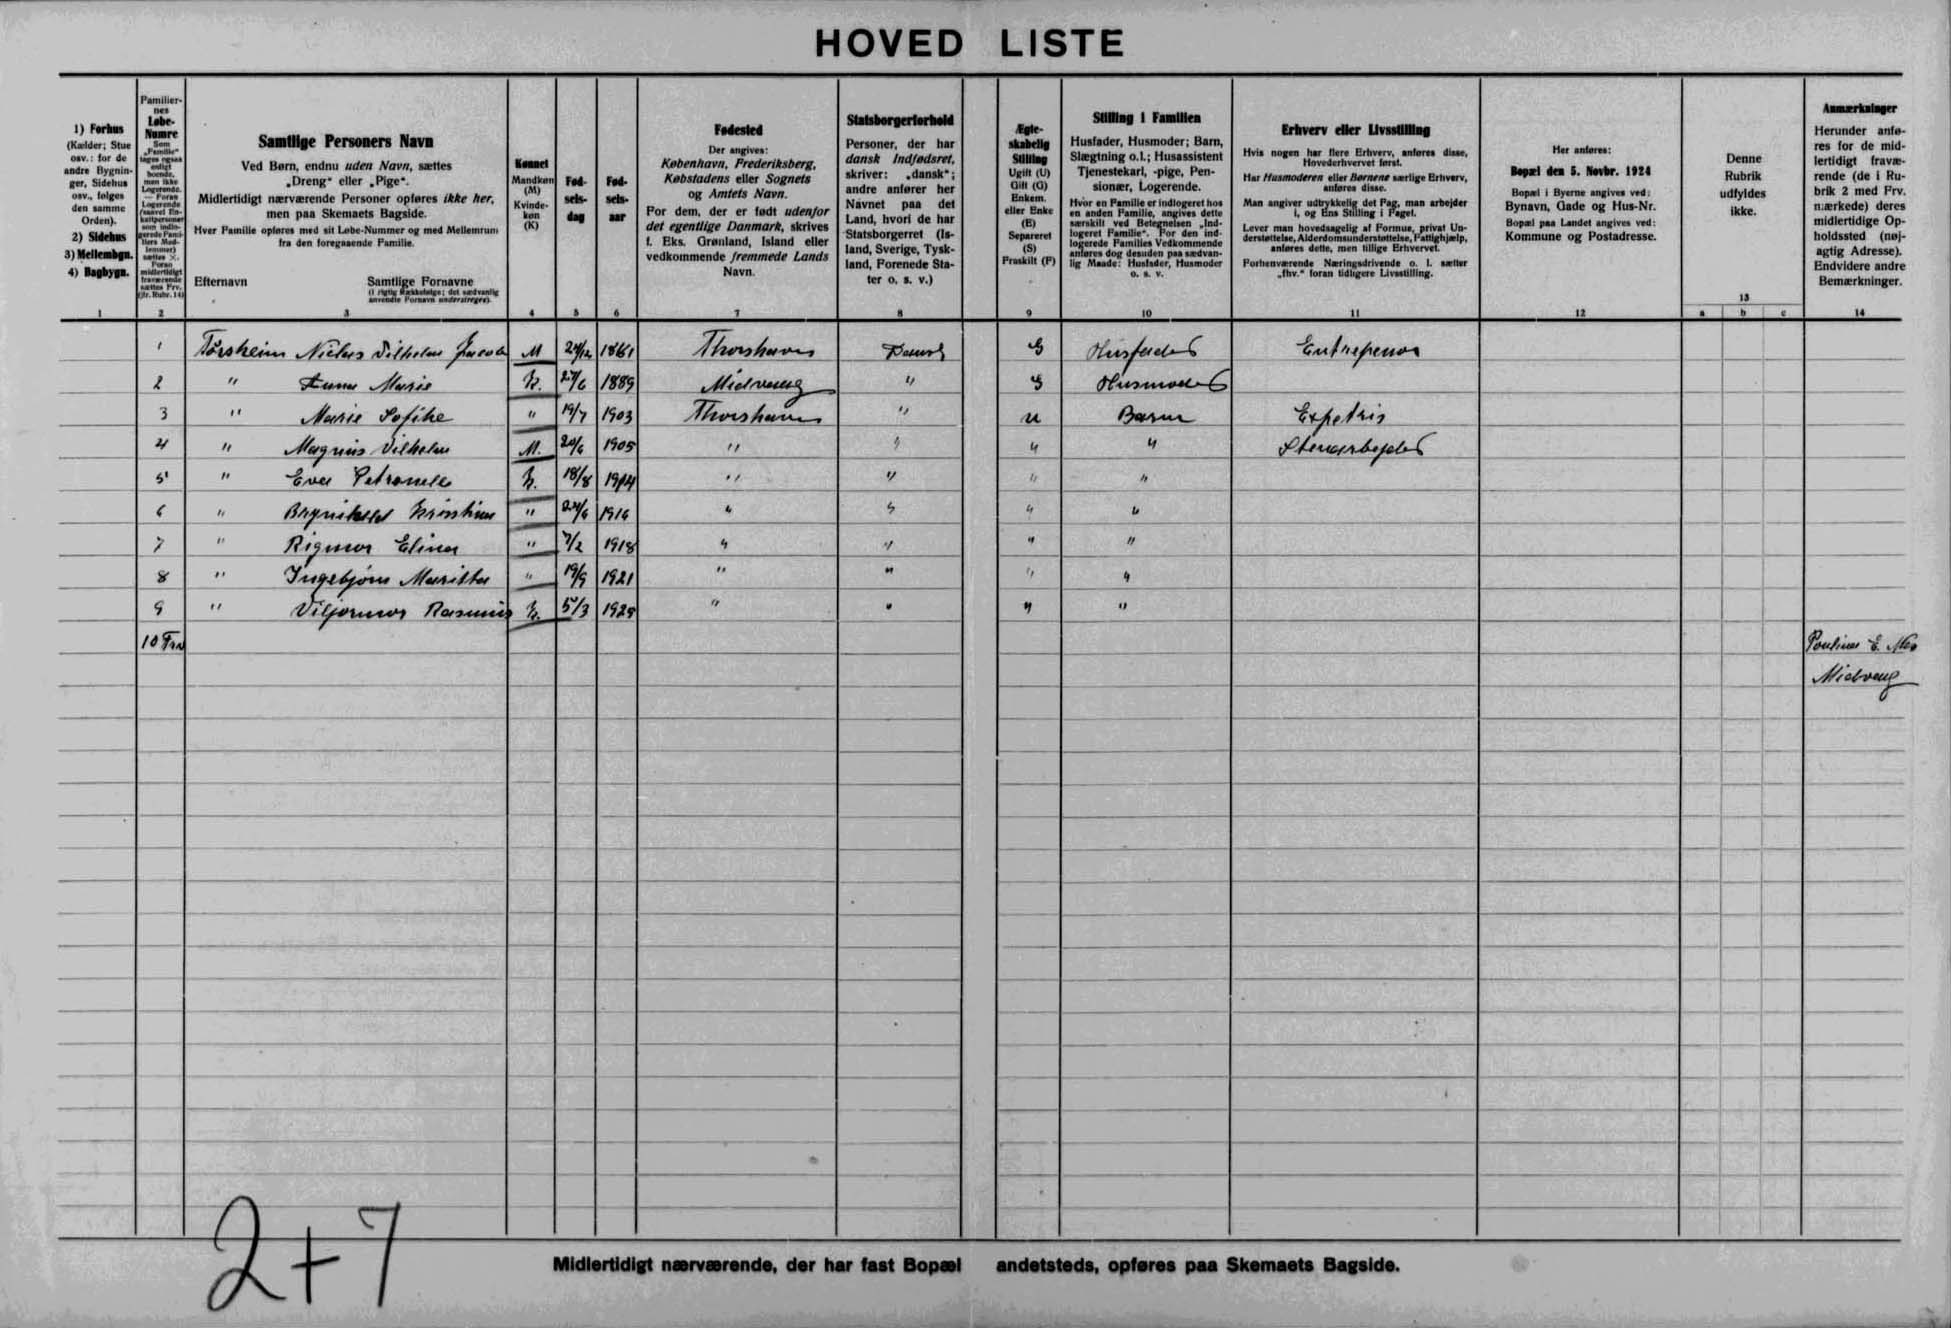 HOVED LISTE
1) Forhus
(Kælder; Stue
osv.: for de
andre Bygnin-
ger, Sidehus
osv., følges
den samme
Orden).
2) Sidehus
3) Mellembgn.
4) Bagbygn.
1
Familier-
nes
Løbe-
Numre
Som
„Familie"
tages ogsaa
enligt
boende,
men ikke
Logerende.
2
Samtlige Personers Navn
Ved Børn, endnu uden Navn, sættes
„Dreng" eller „Pige".
Midlertidigt nærværende Personer opføres ikke her,
men paa Skemaets Bagside.
Hver Familie opføres med sit Løbe-Nummer og med Mellemrum
fra den foregaaende Familie.
Efternavn Samtlige Fornavne
(i rigtig Rækkefølge; det sædvanlig
anvendte Fornavn understreges).
3
Kønnet
Mandkøn
(M)
Kvinde-
køn
(K)
4
Fød-
sels-
dag
5
Fød-
sels-
aar
6
Fødested
Der angives:
København, Frederiksberg,
Købstadens eller Sognets
og Amtets Navn.
For dem, der er født udenfor
det egentlige Danmark, skrives
f. Eks. Grønland, Island eller
vedkommende fremmede Lands
Navn.
7
Statsborgerforhold
Personer, der har
dansk Indfødsret,
skriver: „dansk";
andre anfører her
Navnet paa det
Land, hvori de har
Statsborgerret (Is-
land, Sverige, Tysk-
land, Forenede Sta-
ter o. s. v.)
8
Ægte-
skabelig
Stilling
Ugift (U)
Gift (G)
Enkem.
eller Enke
(E)
Separeret
(S)
Fraskilt (F)
9
Stilling i Familien
Husfader, Husmoder; Barn,
Slægtning o.l.; Husassistent
Tjenestekarl, -pige, Pen-
sionær, Logerende.
Hvor en Familie er indlogeret hos
en anden Familie, angives dette
særskilt ved Betegnelsen „Ind-
logeret Familie". For den ind-
logerede Families Vedkommende
anføres dog desuden paa sædvan-
lig Maade: Husfader, Husmoder
o. s. v.
10
Erhverv eller Livsstilling
Hvis nogen har flere Erhverv, anføres disse,
Hovederhvervet først.
Har Husmoderen eller Børnene særlige Erhverv,
anføres disse.
Man angiver udtrykkelig det Fag, man arbejder
i, og Ens Stilling i Faget.
Lever man hovedsagelig af Formue, privat Un-
derstøttelse, Alderdomsunderstøttelse, Fattighjælp,
anføres dette, men tillige Erhvervet.
Forhenværende Næringsdrivende o. l. sætter
„fhv." foran tidligere Livsstilling.
11
Her anføres:
Bopæl den 5. Novbr. 1924
Bopæl i Byerne angives ved:
Bynavn, Gade og Hus-Nr.
Bopæl paa Landet angives ved:
Kommune og Postadresse.
12
Denne
Rubrik
udfyldes
ikke.
13
a b c
Anmærkninger
Herunder anfø-
res for de mid-
lertidigt fravæ-
rende (de i Ru-
brik 2 med Frv.
mærkede) deres
midlertidige Op-
holdssted (nøj-
agtig Adresse).
Endvidere andre
Bemærkninger.
14
1 Tórsheim Niclas Vilhelm Jacob M 24/12 1861 Thorshavn Dansk G Husfader Entreprenør
2 " Anna Marie K. 27/6 1889 Midvaag " G Husmoder
3 " Marie Sofike " 19/7 1903 Thorshavn " u Barn Expetris
4 " Magnus Vilhelm M. 20/6 1905 " " " " Stenarbejder
5 " Eva Petronelle K. 18/8 1914 " " " "
6 " Brynihild Kristine " 24/6 1916 " " " "
7 " Rigmor Elina " 7/2 1918 " " " "
8 " Ingebjörn Maritha " 19/9 1921 " " " "
9 " Viljormor Rasmus K. 5/3 1925 " " " "
10 Frv Poulina E.
Midvaag
2+7
Midlertidigt nærværende, der har fast Bopæl andetsteds, opføres paa Skemaets Bagside.